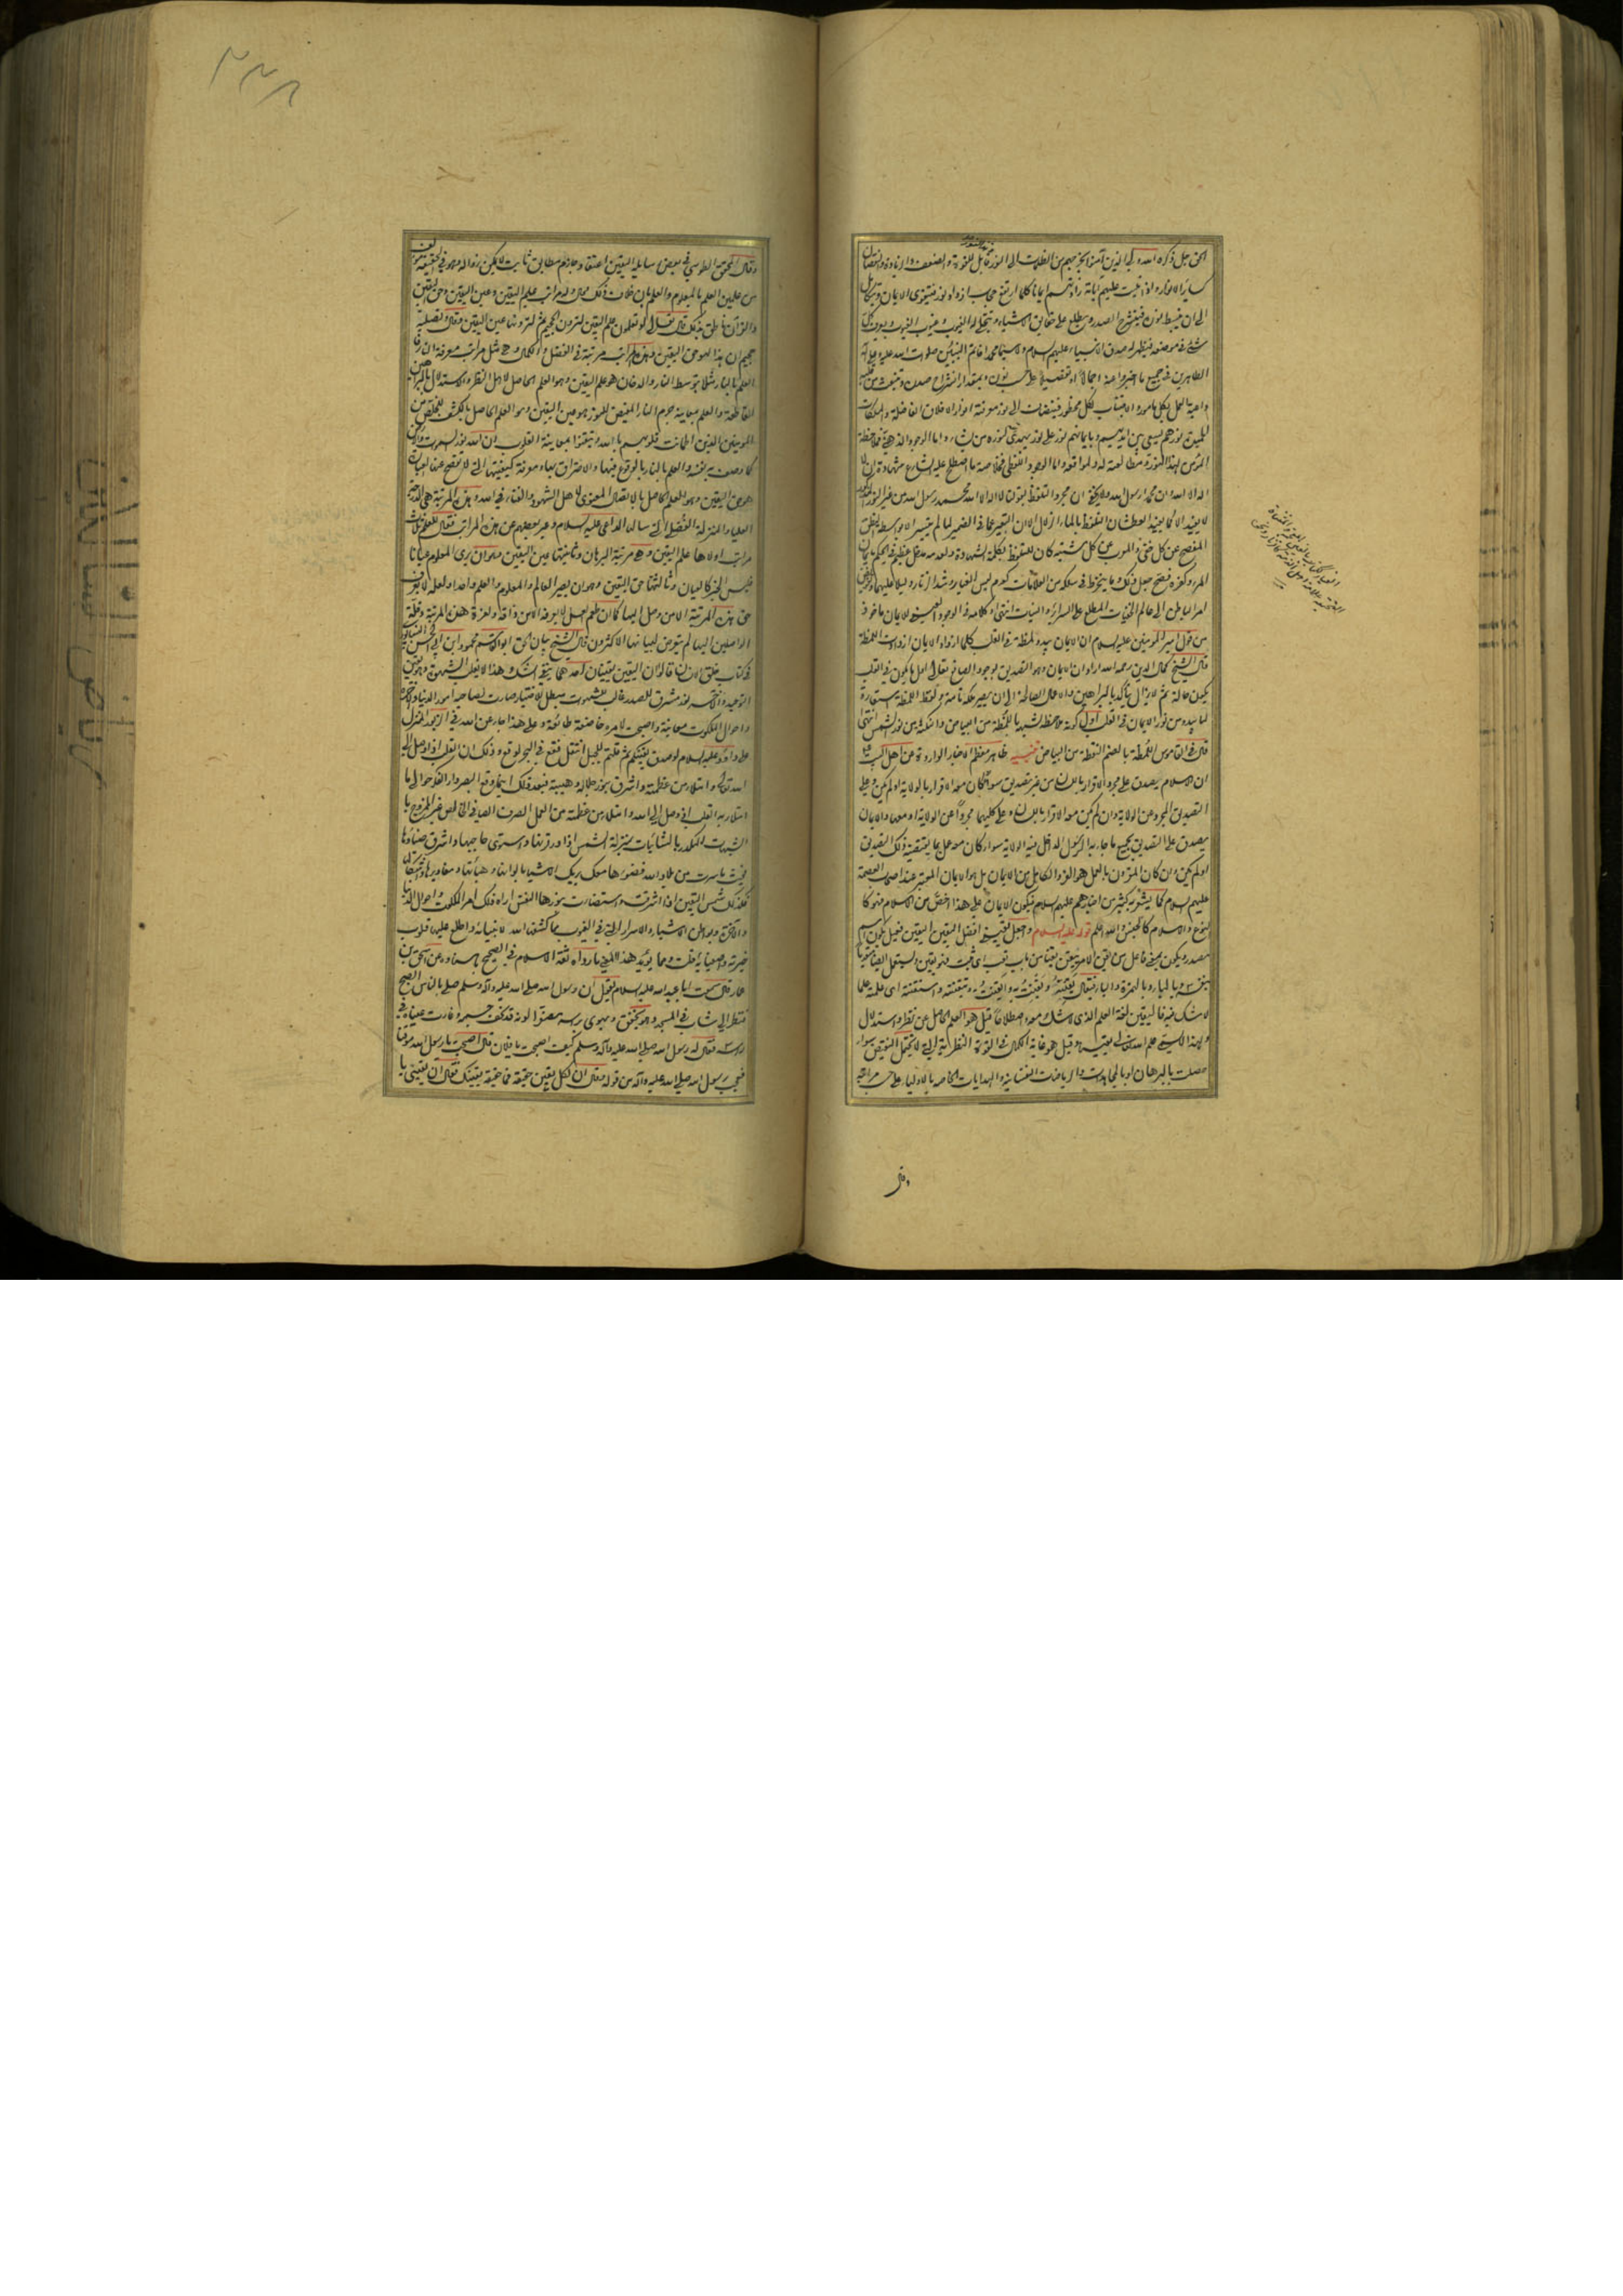 الحق جل ذكره الله ولي الذين آمنوا يخرجهم من الظلمات الى النور قابل للقوة والضعف والزيادة والنقصان
كسائر الانوار واذا تليت عليهم آياته زادتهم ايمانا كلما ارتفع حجاب ازداد نور فيتقوى الايمان ويتكامل
الى ان ينبسط نوره فينشرح الصدر ويطلع على حقايق الاشياء ويتجلى له الغيوب ويعرف كل
شيء في موضعه فيظهر له صدق الانبياء عليهم السلام ولا سيما محمد خاتم النبيين صلوات الله عليه وعلى آله
الطاهرين في جميع ما اخبروا عنه اجمالا او تفصيلا على حسب نوره وبمقدار انشراح صدره وينبعث من قلبه
داعية العمل بكل مامور والاجتناب عن كل محظور فينضاف الى نور معرفته انوار الاخلاق الفاضلة والملكات
الحميدة نورهم يسعى بين ايديهم وبايمانهم نور على نور يهدي الله لنوره من يشاء واما الوجود الذهني فملاحظة
المؤمن لهذا النور ومطالعته له ولمواقعه واما الوجود اللفظي فخلاصة ما اصطلح عليه الشارع شهادة ان لا
اله الا الله وان محمدا رسول الله ولا يخفى ان مجرد التلفظ بقولنا لا اله الا الله محمد رسول الله من غير النور المذكور
لا يفيد الا كما يفيد العطشان التلفظ بالماء الزلال الا ان التعبير عما في الضمير لما لم يتيسر الا بواسطة النطق
المفصح عن كل خفي والمعرب عن كل مشتبه كان للتلفظ بكلمة الشهادة ولعدمه مدخل عظيم في الحكم بايمان
المرء وكفره فصح جعل ذلك وما ينخرط في سلكه من العلامات كعدم لبس الغيار وشد الزنار دليلا عليهما وتفويض
امر الباطن الى عالم الخفيات المطلع على السرائر والنيات انتهى كلامه والوجود العيني للايمان ماخوذ
من قول امير المؤمنين عليه السلام ان الايمان يبدو لمظة في القلب كلما ازداد الايمان ازدادت اللمظة
قال الشيخ كمال الدين رحمه الله اراد ان الايمان وهو التصديق بوجود الصانع تعالى اول ما يكون في القلب
يكون حالة ثم لا يزال يتأكد بالبراهين والاعمال الصالحة الى ان يصير ملكة تامة ولفظ اللمظة استعارة
لما يبدو من نور الايمان في القلب اول كونه ملاحظة لشبهه باللمظة من البياض والنكتة من نور الشمس انتهى
قال في القاموس اللمظة بالضم النقطة من البياض تنبيه ظاهر معظم الاخبار الواردة عن اهل البيت عليهم السلام
ان الاسلام يصدق على مجرد الاقرار باللسان من غير تصديق سواء كان معه الاقرار بالولاية او لم يكن وعلى
التصديق المجرد عن الولاية وان لم يكن معه الاقرار باللسان وعلى كليهما مجردا عن الولاية او معها والايمان
يصدق على التصديق بجميع ما جاء به الرسول الداخل فيه الولاية سواء كان معه عمل بما يقتضيه ذلك التصديق
او لم يكن وان كان المقرون بالعمل هو الفرد الكامل من الايمان بل هو الايمان المعتبر عند اصحاب العصمة
عليهم السلام كما يشعر به كثير من اخبارهم عليهم السلام فيكون الايمان على هذا اخص من الاسلام فهو كا
لنوع والاسلام كالجنس والله اعلم قوله عليه السلام واجعل يقيني افضل اليقين اليقين فعيل يكون اسم
مصدر ويكون بمعنى فاعل من يقن الامر ييقن يقنا من باب تعب اي ثبت فهو يقين ويستعمل ايضا متعديا
بنفسه وبالباء وبالهمزة والباء فيقال يقنته ويقنت به وايقنت به وتيقنته واستيقنته اي علمته علما
لا شك فيه فاليقين لغة العلم الذي لا شك معه واصطلاحا قيل هو العلم الحاصل عن نظر واستدلال
ولهذا لا يسمى علم الله تعالى يقينا وقيل هو غاية الكمال في القوة النظرية التي لا تحتمل النقيض سواء
حصلت بالبرهان او بالمجاهدات والرياضات النفسانية والهدايات الخاصة بالاولياء على حسب مراتبهم
وقال
وقال المحقق الطوسي في بعض رسايله اليقين اعتقاد جازم مطابق ثابت لا يمكن زواله وهو في الحقيقة مؤلف
من علمين العلم بالمعلوم والعلم بان خلاف ذلك محال وله مراتب علم اليقين وعين اليقين وحق اليقين
والقرآن ناطق بذلك قال تعالى لو تعلمون علم اليقين لترون الجحيم ثم لترونها عين اليقين وقال وتصلية
جحيم ان هذا لهو حق اليقين وهذه المراتب مرتبة في الفضل والكمال وهي مثل مراتب معرفة النار فان
العلم بالنار مثلا بتوسط النار والدخان هو علم اليقين وهو العلم الحاصل لاهل النظر والاستدلال بالبراهين
القاطعة والعلم بمعاينة جرم النار المفيض للنور هو عين اليقين وهو العلم الحاصل بالكشف للخلص من
المؤمنين الذين اطمانت قلوبهم بالله وتيقنوا بمعاينة القلوب ان الله نور السموات والارض
كما وصف به نفسه والعلم بالنار بالوقوع فيها والاحتراق بها ومعرفة كيفيتها التي لا تفصح عنها العبارة
هو حق اليقين وهو العلم الحاصل بالاتصال المعنوي لاهل الشهود والفناء في الله وهذه المرتبة هي الدرجة
العليا والمنزلة الفضلى التي سألها الداعي عليه السلام وعبر بعضهم عن هذه المراتب فقال للعلم ثلاث
مراتب اولاها علم اليقين وهي مرتبة البرهان وثانيتها عين اليقين وهو ان يرى المعلوم عيانا
فليس الخبر كالعيان وثالثتها حق اليقين وهو ان يصير العالم والمعلوم والعلم واحدا ولعله لا يعرف
حق هذه المرتبة الا من وصل اليها كما ان طعم العسل لا يعرفه الا من ذاقه ولعزة هذه المرتبة وقلة
الواصلين اليها لم يتعرض لبيانها الاكثرون قال الشيخ بيان الحق ابو القاسم محمود بن ابي الحسن النيسابوري
في كتاب خلق الانسان قالوا ان اليقين يقينان احدهما ينفي الشك وهذا لا يغلب الشهوة وهو يقين
التوحيد والآخر نور مشرق للصدر غالب للشهوات مبطل للاختيار صارت لصاحبه امور الدنيا والآخرة
واحوال الملكوت معاينة واصبحت لامره خاضعة طائعة وعلى هذا جاء عن الله في الزبور المنزل
على داود عليه السلام لو صدق يقينكم ثم قلتم للجبل انتقل فقع في البحر لوقع وذلك ان القلب اذا وصل الى
الله تعالى وامتلأ من عظمته واشرق بنور جلاله وهيبته فبعد ذلك اينما وقع البصر دار الفؤاد حوالي ما
امتلأ به القلب اذ وصل الى الله وامتلأ من عظمته من العمل الصرف الصافي الخالص غير الممزوج با
لشبهات المكدر بالشائبات بمنزلة الشمس اذا دورقتها واستوى حاجبها واشرق ضياؤها
فحيث ما سرت من بلاد الله فضوءها معك يريك الاشياء بالوانها وهيأتها ومقاديرها واشكالها
فكذلك شمس اليقين اذا اشرقت واستضاءت بنورها النفس اراه ذلك امر الملكوت واحوال الدنيا
والآخرة وبواطن الاشياء والاسرار التي في الغيوب مما كشف الله لانبيائه واطلع عليه قلوب
خيرته واصفيائه قلت ومما يؤيد هذا المعنى ما رواه ثقة الاسلام في الصحيح باسناده عن اسحق بن
عمار قال سمعت ابا عبد الله عليه السلام يقول ان رسول الله صلى الله عليه وآله وسلم صلى بالناس الصبح
فنظر الى شاب في المسجد وهو يخفق ويهوي برأسه مصفرا لونه قد نحف جسمه وغارت عيناه في
رأسه فقال له رسول الله صلى الله عليه وآله وسلم كيف اصبحت يا فلان قال اصبحت يا رسول الله موقنا
فعجب رسول الله صلى الله عليه وآله من قوله وقال ان لكل يقين حقيقة فما حقيقة يقينك فقال ان يقيني يا